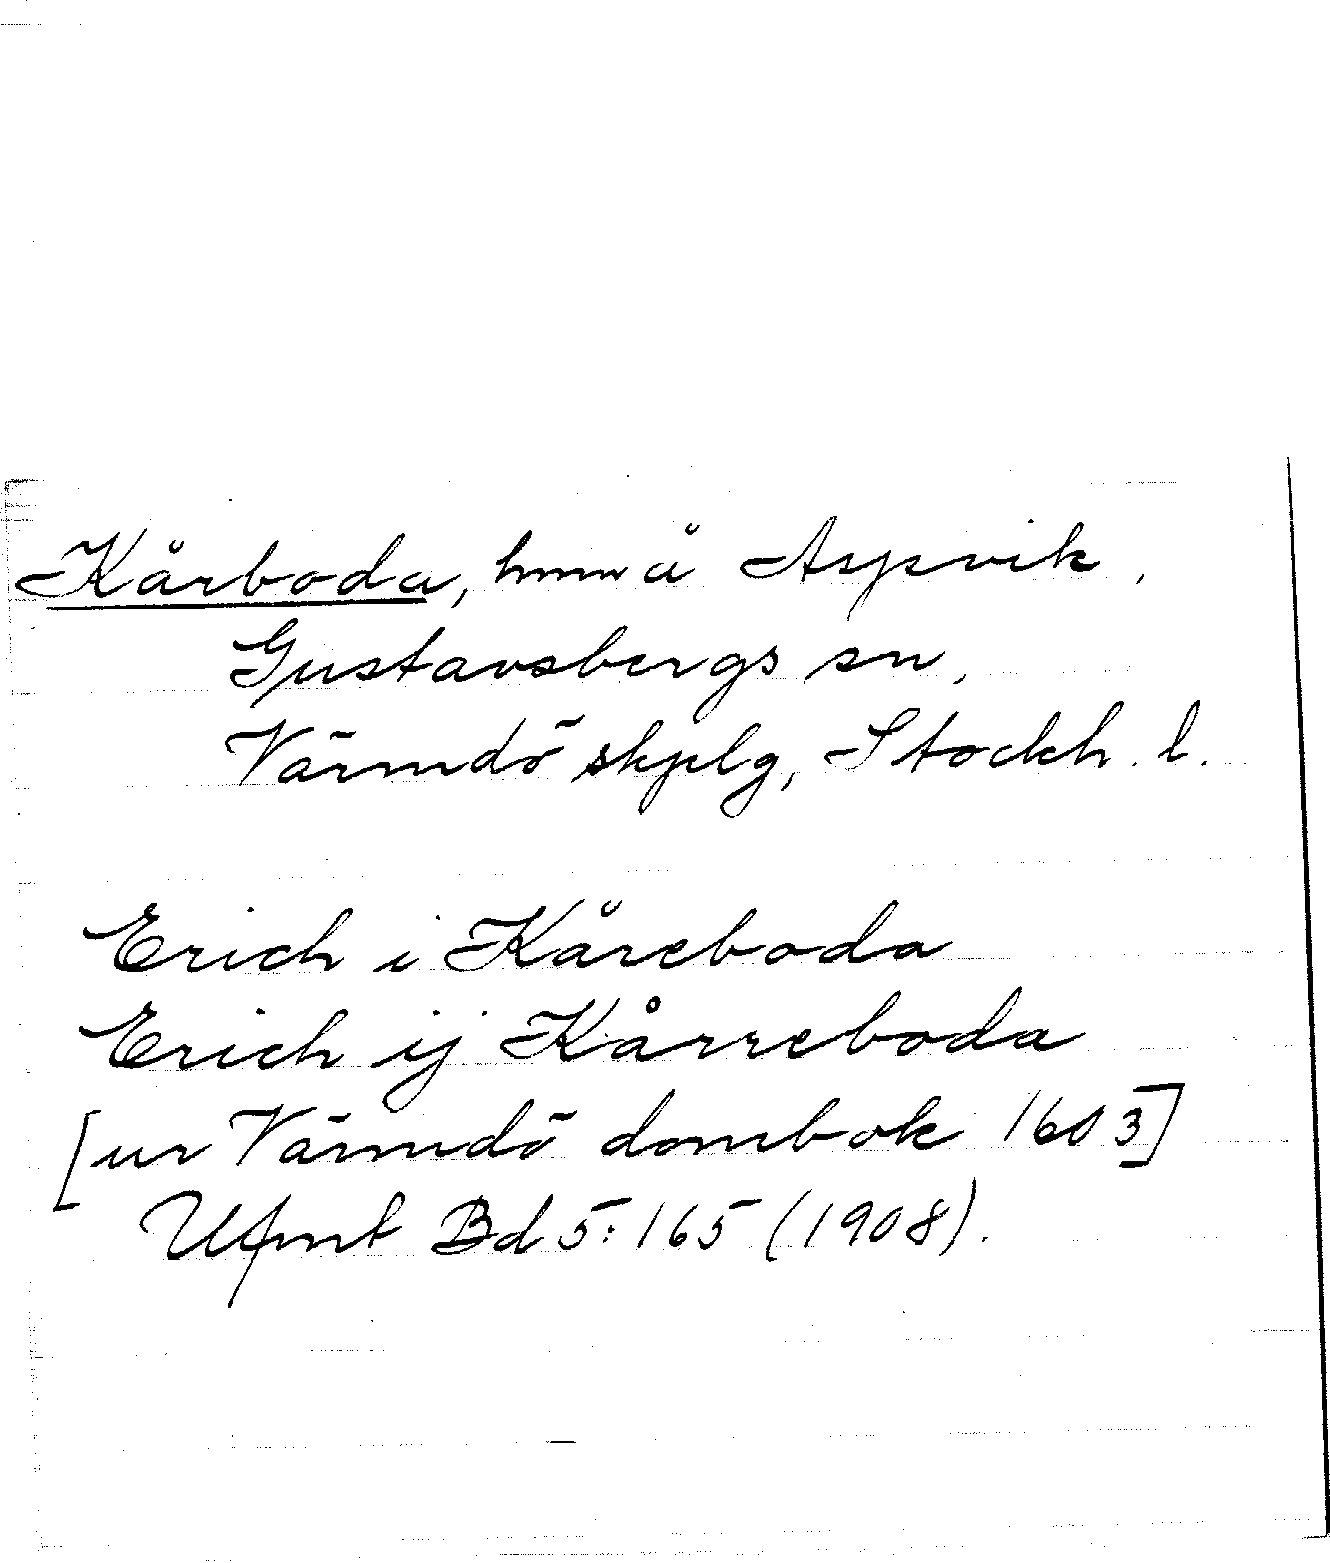 Kårboda, hmn å Aspvik,
Gustavsbergs sn,
Värmdö skplg, Stockh. l.
Erich i Kåreboda
Erich ij Kårreboda
[ur Värmdö dombok 1603]
Ufmt Bd 5:165 (1908).